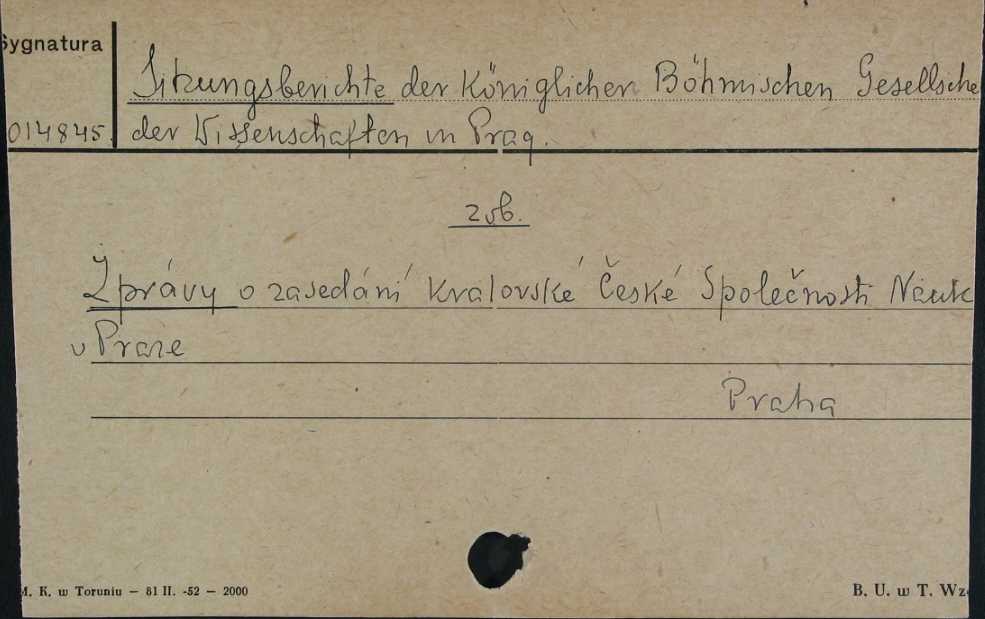 Sygnatura
Sitzungsberichte der Königlichen Böhmischen Gesellsche
014845. der Wissenschaften in Prag.
zob.
Zprávy o zasedání Kralovské České Společnosti Nauk
v Praze
Praha
M. K. w Toruniu — 81 II. -52 — 2000
B. U. w T. Wzo